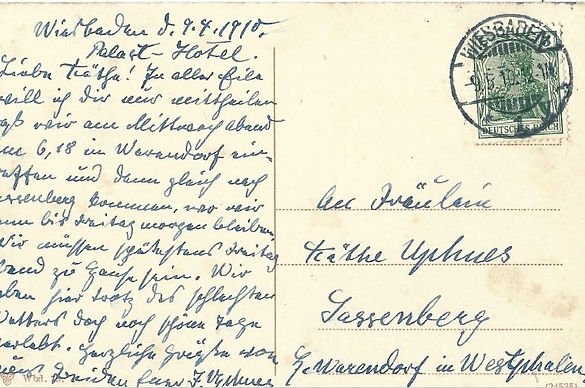 Wiesbaden d. 9.4.1910.
Palast-Hotel.
Liebe Käthe! In aller Eile
will ich dir nur mittheilen
daß wir am Mittwoch abend
um 6,18 in Warendorf ein-
treffen und dann gleich nach
Sassenberg kommen, wo wir
dann bis Freitag morgen bleiben.
Wir müssen spätestens Freitag
abend zu Hause sein. Wir
haben hier trotz des schlechten
Wetters doch noch schöne Tage
verlebt. Herzliche Grüße von
uns beiden Euer J. Uphues
WIESBADEN
DEUTSCHES REICH
An Fräulein
Käthe Uphues
Sassenberg
b. Warendorf in Westphalen